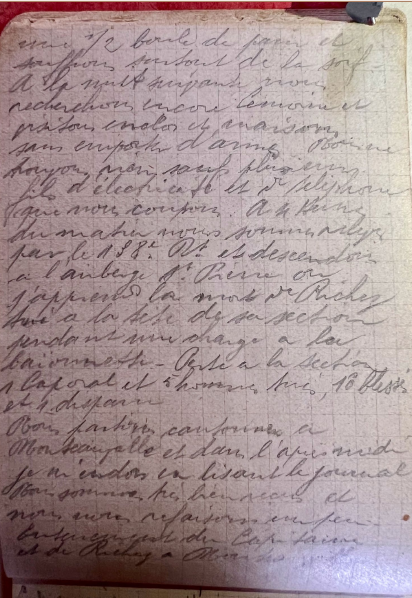 une 1/2 boule de pain et
souffrons surtout de la soif.
A la nuit suivante nous
recherchons encore Lemoine et
visitons enclos et maisons
sans emporter d'arme. Nous ne
trouvons rien sauf plusieurs
fils d'électricité et de téléphone
que nous coupons. A 4 heures
du matin nous sommes relevés
par le 158e Rt et descendons
a l'auberge St Pierre ou
j'apprend la mort de Richez
tué a la tête de sa section
pendant une charge a la
baionnette - Perte a la section
1 Caporal et 5 hommes tués, 16 blessés
et 4 disparu
Nous partons cantonner a
et dans l'après midi
je m'endors en lisant le journal
Nous sommes très bien reçus et
nous nous refaisons un peu
Enterrement du Capitaine
et de Richez a